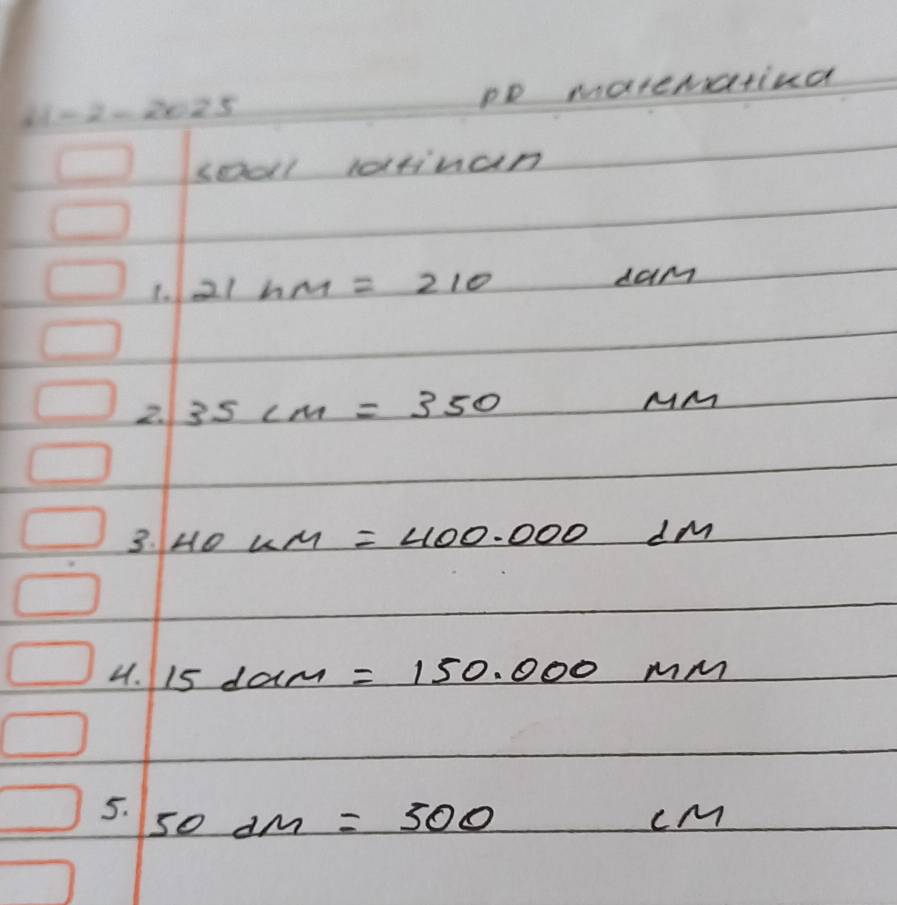 PR Matematika
Soal latihan
1. 21 hM = 210 daM
2. 35 cM = 350 MM
3. 40 kM = 400.000 dM
4. 15 daM = 150.000 MM
5. 50 dM = 500 cM